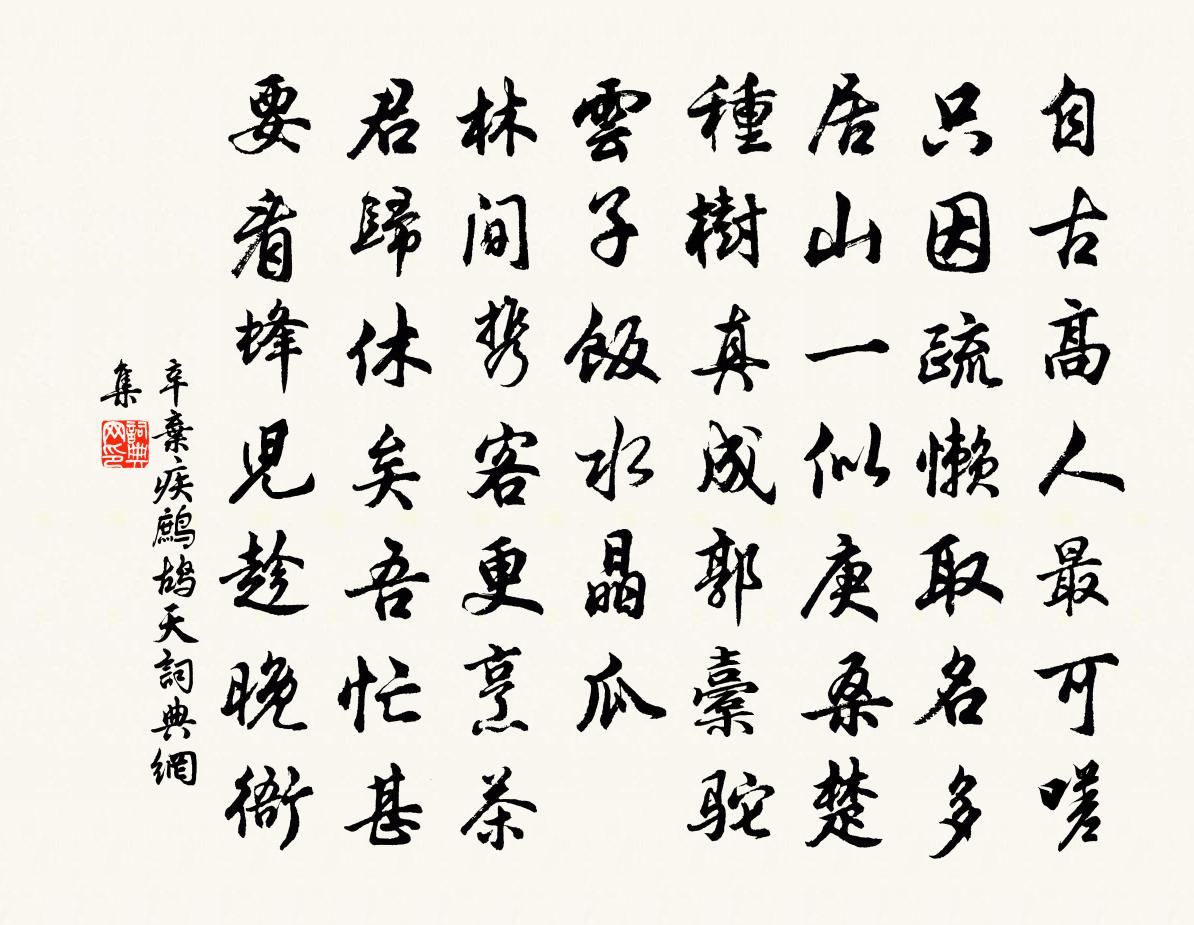 自古高人最可嗟
只因疏懶取名多
居山一似庚桑楚
種樹真成郭橐駝
雲子飯水晶瓜
林間携客更烹茶
君歸休矣吾忙甚
要看蜂兒趁晚衙
辛棄疾鷓鴣天詞典網
集
詞典
网印